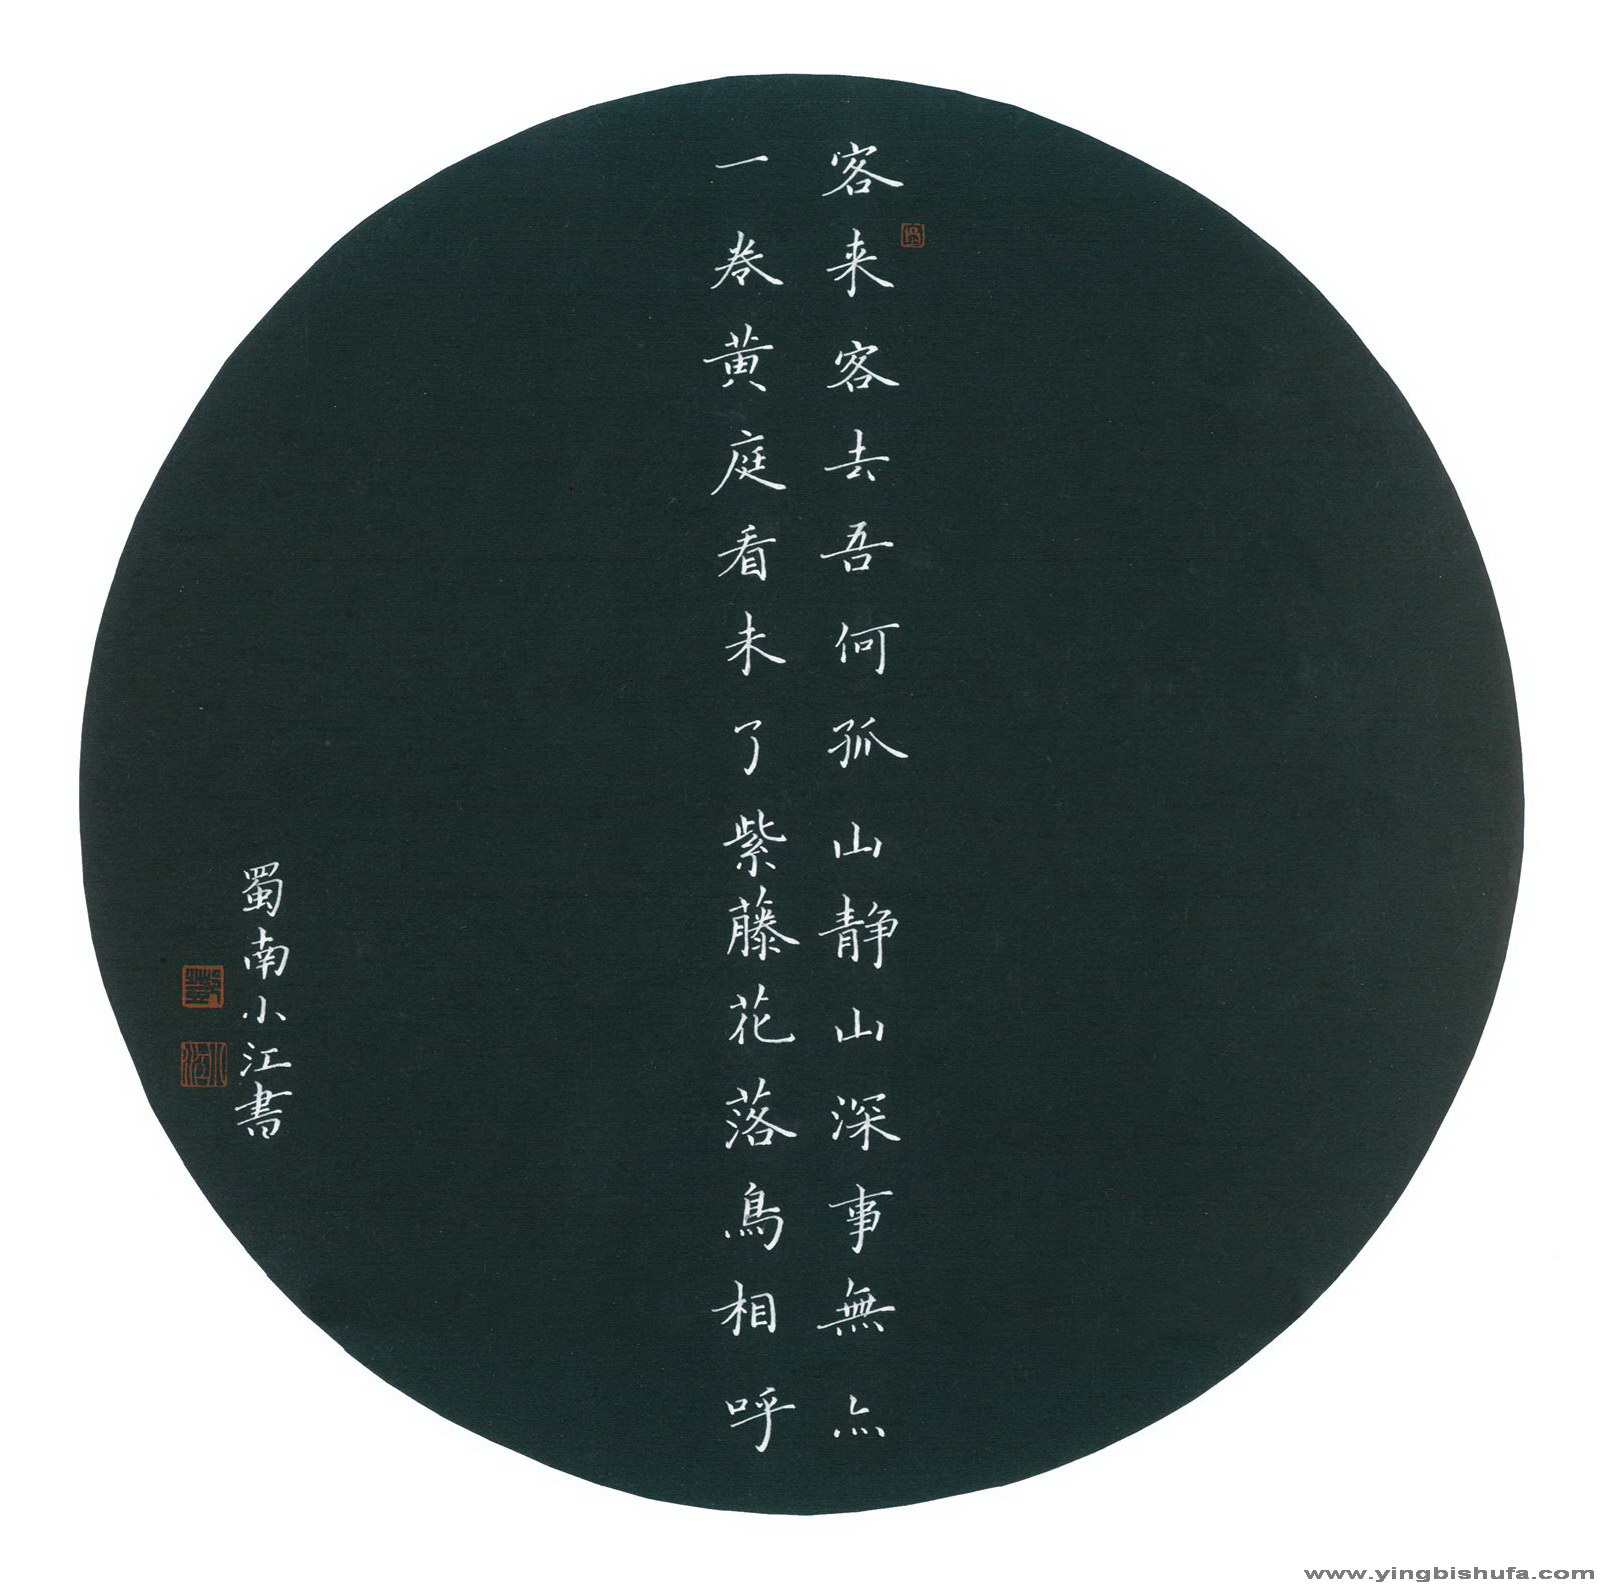 客来客去吾何孤山静山深事無
一卷黄庭看未了紫藤花落鳥相呼
蜀南小江書
www.yingbishufa.com